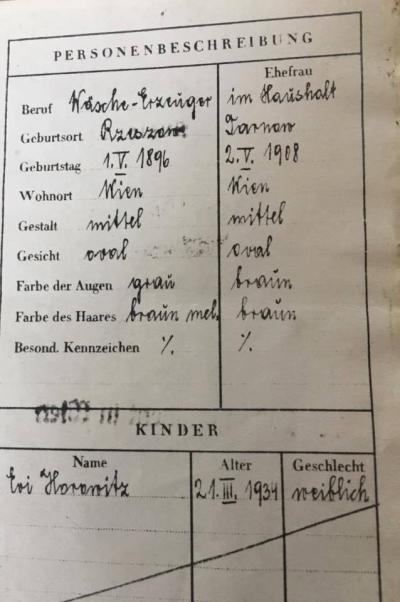 PERSONENBESCHREIBUNG
Ehefrau
Beruf Wäsche-Erzeuger im Haushalt
Geburtsort Rzeszow Tarnow
Geburtstag 1. V. 1896 2. V. 1908
Wohnort Wien Wien
Gestalt mittel mittel
Gesicht oval oval
Farbe der Augen grau braun
Farbe des Haares braun mel. braun
Besond. Kennzeichen %. %.
KINDER
Name Alter Geschlecht
Evi Horowitz 21. III. 1934 weiblich